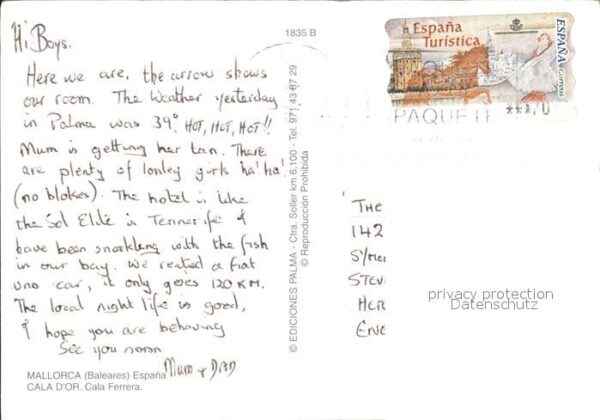 Hi Boys.
Here we are, the arrow shows
our room. The Weather yesterday
in Palma was 39° HOT, HOT, HOT!!
Mum is getting her tan. There
are plenty of lonley girls ha! ha!
(no blokes). The hotel is like
the Sol Elite in Tennerife &
have been snorkling with the fish
in our bay. We rented a fiat
uno car, it only goes 120 KM.
The local night life is good,
I hope you are behaving
See you soon
Mum & DAD
MALLORCA (Baleares) España
CALA D'OR. Cala Ferrera.
1835 B
© EDICIONES PALMA - Ctra. Soller km 6,100 - Tel. 971 43 87 29
© Reproducción Prohibida
España
Turística
ESPAÑA
Correos
PAQUETE
THE
142
SYMO
STEV
HER
ENG
privacy protection
Datenschutz